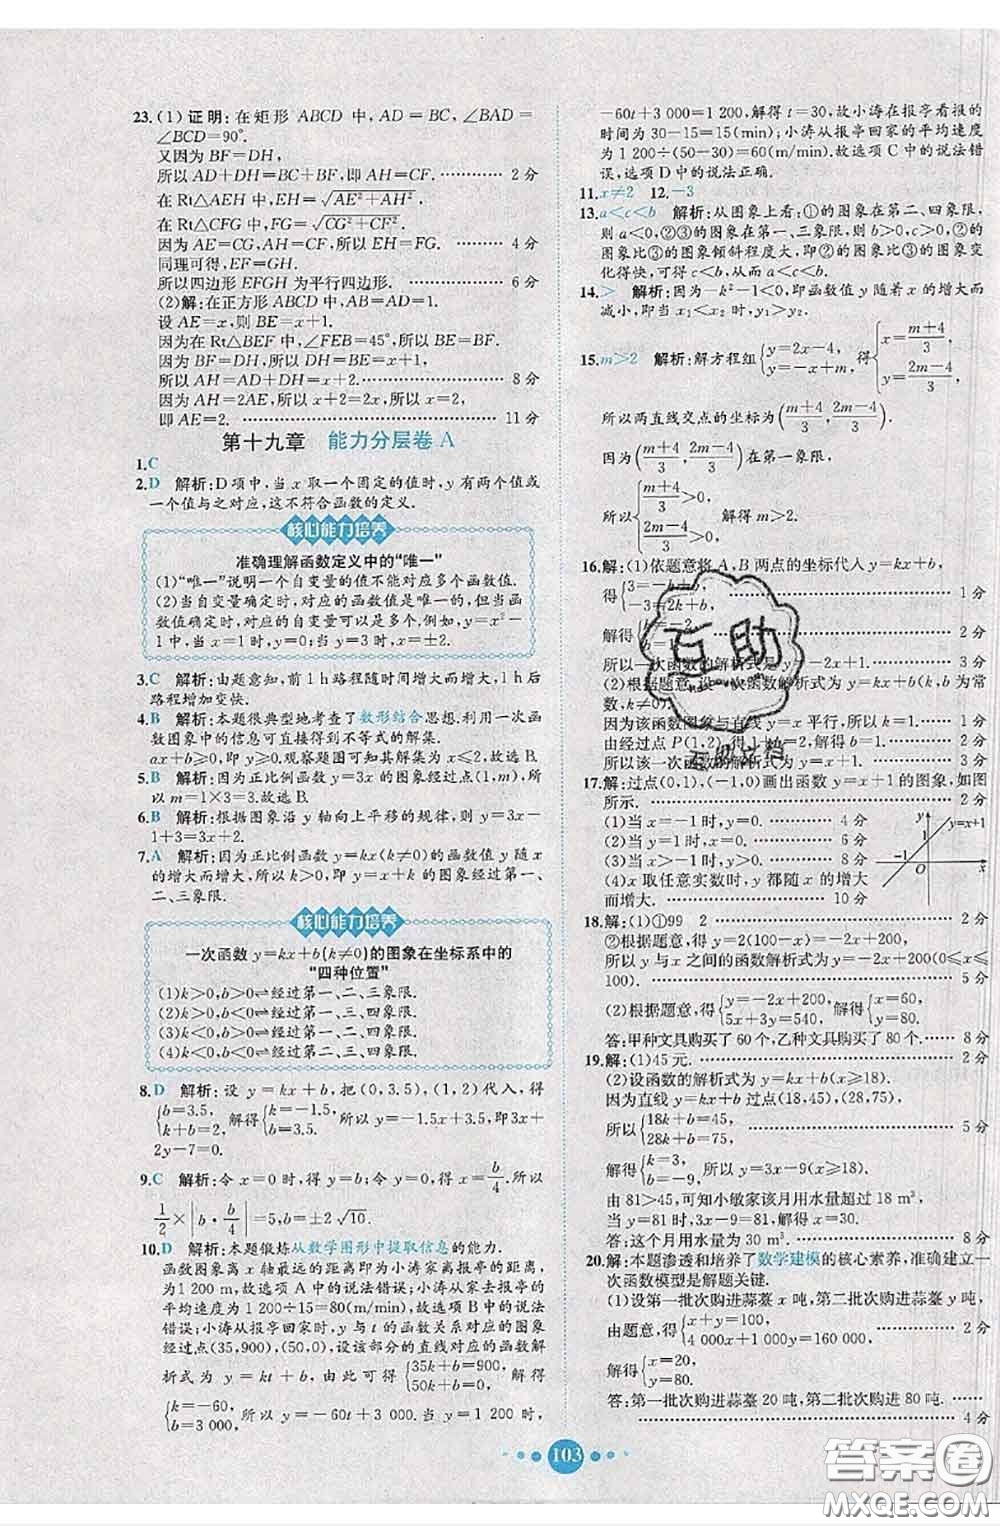 23.(1)证明:在矩形 ABCD 中,AD=BC,∠BAD=
∠BCD=90°.
又因为 BF=DH,
所以 AD+DH=BC+BF,即 AH=CF. 2 分
在 Rt△AEH 中,EH=√(AE²+AH²).
在 Rt△CFG 中,FG=√(CG²+CF²).
因为 AE=CG,AH=CF,所以 EH=FG. 4 分
同理可得,EF=GH.
所以四边形 EFGH 为平行四边形. 6 分
(2)解:在正方形 ABCD 中,AB=AD=1.
设 AE=x,则 BE=x+1.
因为在 Rt△BEF 中,∠FEB=45°,所以 BE=BF.
因为 BF=DH,所以 DH=BE=x+1,
所以 AH=AD+DH=x+2. 8 分
因为 AH=2AE,所以 x+2=2x,所以 x=2,
即 AE=2. 11 分
第十九章 能力分层卷 A
1.C
2.D 解析:D 项中,当 x 取一个固定的值时,y 有两个值或
一个值与之对应,这不符合函数的定义.
核心能力培养
准确理解函数定义中的“唯一”
(1)“唯一”说明一个自变量的值不能对应多个函数值.
(2)当自变量确定时,对应的函数值是唯一的,但当函
数值确定时,对应的自变量可以是多个.例如,y=x²-
1中,当 x=1时,y=0;当 y=3时,x=±2.
3.C 解析:由题意知,前 1 h 路程随时间增大而增大,1 h 后
路程增加变快.
4.B 解析:本题很典型地考查了数形结合思想.利用一次函
数图象中的信息可直接得到不等式的解集.
ax+b≥0,即要观察图象可知解集为 x≤2,故选 B.
5.B 解析:因为正比例函数 y=3x 的图象经过点(1,m),所
以 m=1×3=3.故选 B.
6.B 解析:根据图象沿 y 轴向上平移的规律,则 y=3x-
1+3=3x+2.
7.A 解析:因为正比例函数 y=kx(k≠0)的函数值 y 随 x
的增大而增大,所以 k>0,即 y=kx+k 的图象经过第一、
二、三象限.
核心能力培养
一次函数 y=kx+b(k≠0)的图象在坐标系中的
“四种位置”
(1)k>0,b>0⇌经过第一、二、三象限.
(2)k>0,b<0⇌经过第一、三、四象限.
(3)k<0,b>0⇌经过第一、二、四象限.
(4)k<0,b<0⇌经过第二、三、四象限.
8.D 解析:设 y=kx+b,把(0,3.5),(1,2)代入,得
{b=3.5, k+b=2, 解得{k=-1.5, b=3.5, 所以 y=-1.5x+3.5,即3x+
2y-7=0.
9.C 解析:令 x=0 时,得 y=b;令 y=0 时,得 x=b/4.所以
1/2×|b·b/4|=5,b=±2√10.
10.D 解析:本题锻炼从数学图形中提取信息的能力.
函数图象离 x 轴最远的距离,即小涛离家报亭的距离,
为 1 200 m,故选项 A 中的说法错误;小涛从家去报亭的
平均速度为 1 200÷15=80(m/min),故选项 B 中的说法
错误;小涛从报亭回家时,y 与 t 的函数关系对应的图象
经过点(35,900),(50,0),设该部分的直线对应的函数解
析式为 y=kt+b,所以{35k+b=900, 50k+b=0, 解得
{k=-60, b=3 000, 所以 y=-60t+3 000.当 y=1 200 时,
-60t+3 000=1 200,解得 t=30,故小涛在报亭看报的
时间为 30-15=15(min);小涛从报亭回家的平均速度
为 1 200÷(50-30)=60(m/min),故选项 C 中的说法错
误,选项 D 中的说法正确.
11.x≠2 12.-3
13.a<c<b 解析:从图象上看,①的图象在第二、四象限,
则 a<0,②③的图象在第一、三象限,所以 b>0,c>0,②的
图象比③的图象倾斜程度大,即②的图象比③的图象
变化得快,可得 c<b,从而 a<c<b.
14.> 解析:因为-k²-1<0,即函数值 y 随着 x 的增大而
减小,即当 x₁<x₂ 时,y₁>y₂.
15.m>2 解析:解方程组{y=2x-4, y=-x+m, 得{x=(m+4)/3, y=(2m-4)/3,
所以两直线交点的坐标为((m+4)/3,(2m-4)/3).
因为((m+4)/3,(2m-4)/3)在第一象限,
所以{(m+4)/3>0, (2m-4)/3>0, 解得 m>2.
16.解:(1)依题意将 A,B 两点的坐标代入 y=kx+b,
得{3=-k+b, -3=2k+b, 1 分
解得 2 分
所以一次函数的解析式是 3 分
(2)根据题意,设一次函数解析式为 y=kx+b(k,b 为常
数,k≠0).
因为该函数图象与直线 y=x 平行,所以 k=1. 1 分
由经过点 P(1,2),得 1+b=2,解得 b=1. 2 分
所以该一次函数的解析式为 y=x+1. 3 分
17.解:过点(0,1),(-1,0)画出函数 y=x+1 的图象,如图
所示. 2 分
(1)当 x=-1 时,y=0. 4 分
(2)当 x>-1 时,y>0. 6 分
(3)当 x>-1 时,y>0. 8 分
(4)x 取任意实数时,y 都随 x 的增大
而增大. 10 分
y y=x+1
1
-1 O x
18.解:(1)①99 2 2 分
②根据题意,得 y=2(100-x)=-2x+200,
所以 y 与 x 之间的函数解析式为 y=-2x+200(0≤x≤
100). 5 分
(2)根据题意,得{y=-2x+200, 5x+3y=540, 解得{x=60, y=80.
答:甲种文具购买了 60 个,乙种文具购买了 80 个. 8 分
19.解:(1)45 元. 2 分
(2)设函数的解析式为 y=kx+b(x≥18).
因为直线 y=kx+b 过点(18,45),(28,75),
所以{18k+b=45, 28k+b=75, 5 分
解得{k=3, b=-9, 所以 y=3x-9(x≥18).
由 81>45,可知小敏家该月用水量超过 18 m³,
当 y=81 时,3x-9=81,解得 x=30.
答:这个月用水量为 30 m³. 8 分
20.解:本题渗透和培养了数学建模的核心素养,准确建立一
次函数模型是解题关键.
(1)设第一批次购进蒜薹 x 吨,第二批次购进蒜薹 y 吨,
由题意,得{x+y=100, 4 000x+1 000y=160 000, 2 分
解得{x=20, y=80.
答:第一批次购进蒜薹 20 吨,第二批次购进 80 吨.
4 分
103
互助
互助文档
答案圈
MXQE.COM